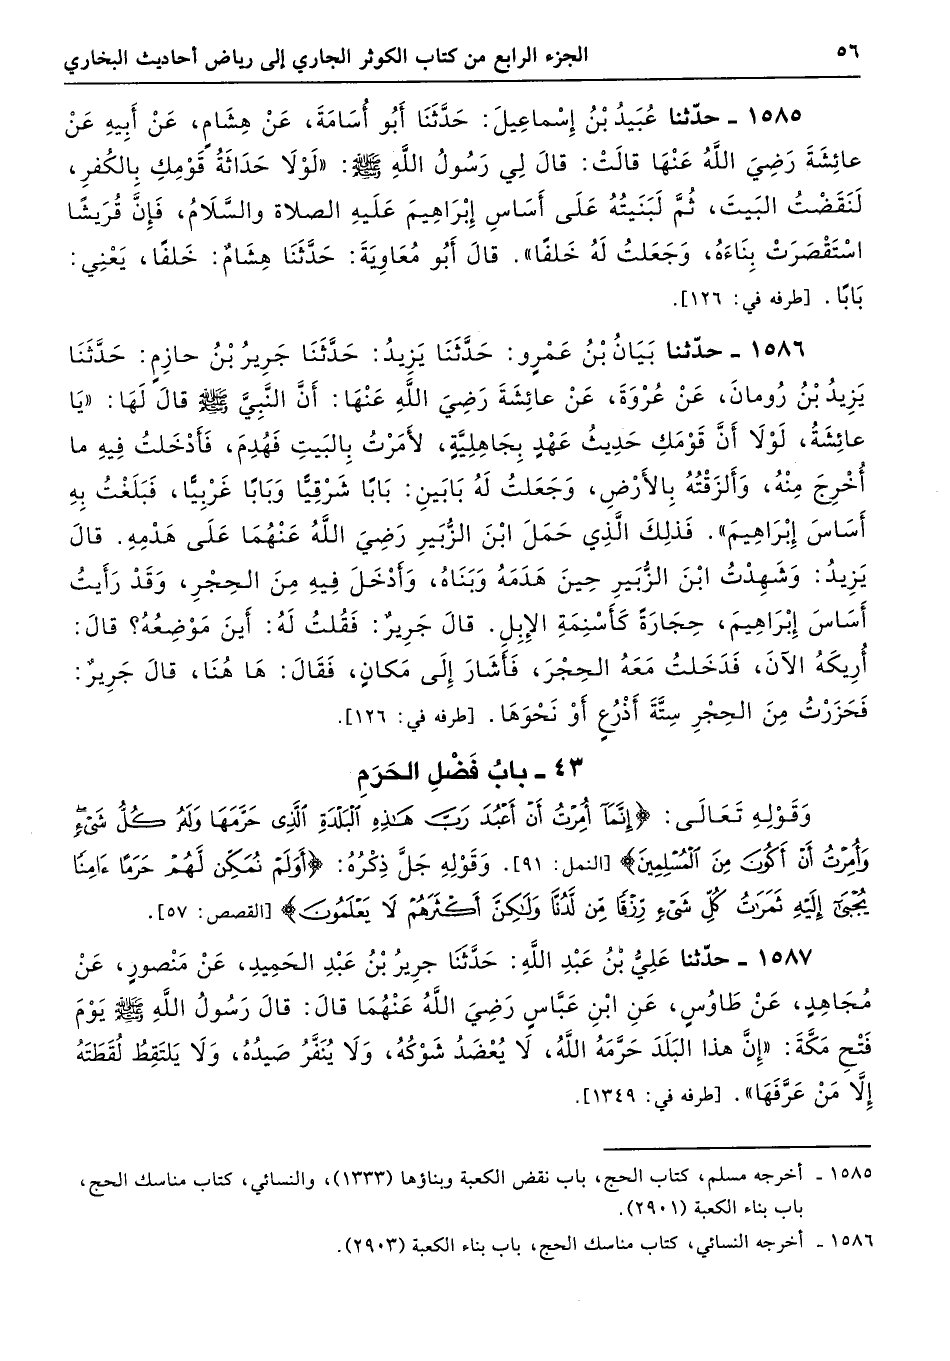 ٥٦
الجزء الرابع من كتاب الكوثر الجاري إلى رياض أحاديث البخاري
١٥٨٥ ـ حدّثنا عُبَيدُ بْنُ إِسْماعِيلَ: حَدَّثَنَا أَبُو أُسَامَةَ، عَنْ هِشَامٍ، عَنْ أَبِيهِ عَنْ
عائِشَةَ رَضِيَ اللَّهُ عَنْهَا قالَتْ: قالَ لِي رَسُولُ اللَّهِ ﷺ: «لَوْلَا حَدَاثَةُ قَوْمِكِ بِالكُفرِ،
لَنَقَضْتُ البَيتَ، ثُمَّ لَبَنَيتُهُ عَلَى أَسَاسِ إِبْرَاهِيمَ عَلَيهِ الصلاة والسَّلَامُ، فَإِنَّ قُرَيشًا
اسْتَقْصَرَتْ بِنَاءَهُ، وَجَعَلتُ لَهُ خَلفًا». قالَ أَبُو مُعَاوِيَةَ: حَدَّثَنَا هِشَامٌ: خَلفًا، يَعْنِي:
بَابًا. [طرفه في: ١٢٦].
١٥٨٦ ـ حدّثنا بَيَانُ بْنُ عَمْرٍو: حَدَّثَنَا يَزِيدُ: حَدَّثَنَا جَرِيرُ بْنُ حازِمٍ: حَدَّثَنَا
يَزِيدُ بْنُ رُومانَ، عَنْ عُرْوَةَ، عَنْ عائِشَةَ رَضِيَ اللَّهُ عَنْهَا: أَنَّ النَّبِيَّ ﷺ قالَ لَهَا: «يَا
عائِشَةُ، لَوْلَا أَنَّ قَوْمَكِ حَدِيثُ عَهْدٍ بِجَاهِلِيَّةٍ، لأَمَرْتُ بِالبَيتِ فَهُدِمَ، فَأَدْخَلتُ فِيهِ ما
أُخْرِجَ مِنْهُ، وَأَلزَقْتُهُ بِالأَرْضِ، وَجَعَلتُ لَهُ بَابَينِ: بَابًا شَرْقِيًّا وَبَابًا غَرْبِيًّا، فَبَلَغْتُ بِهِ
أَسَاسَ إِبْرَاهِيمَ». فَذلِكَ الَّذِي حَمَلَ ابْنَ الزُّبَيرِ رَضِيَ اللَّهُ عَنْهُمَا عَلَى هَدْمِهِ. قالَ
يَزِيدُ: وَشَهِدْتُ ابْنَ الزُّبَيرِ حِينَ هَدَمَهُ وَبَنَاهُ، وَأَدْخَلَ فِيهِ مِنَ الحِجْرِ، وَقَدْ رَأَيتُ
أَسَاسَ إِبْرَاهِيمَ، حِجَارَةً كَأَسْنِمَةِ الإِبِلِ. قالَ جَرِيرٌ: فَقُلتُ لَهُ: أَينَ مَوْضِعُهُ؟ قالَ:
أُرِيكَهُ الآنَ، فَدَخَلتُ مَعَهُ الحِجْرَ، فَأَشَارَ إِلَى مَكانٍ، فَقَالَ: هَا هُنَا، قالَ جَرِيرٌ:
فَحَزَرْتُ مِنَ الحِجْرِ سِتَّةَ أَذْرُعٍ أَوْ نَحْوَهَا. [طرفه في: ١٢٦].
٤٣ ـ بابُ فَضْلِ الحَرَمِ
وَقَوْلِهِ تَعَالَى: ﴿إِنَّمَآ أُمِرْتُ أَنْ أَعْبُدَ رَبَّ هَٰذِهِ ٱلْبَلْدَةِ ٱلَّذِى حَرَّمَهَا وَلَهُۥ كُلُّ شَىْءٍۖ
وَأُمِرْتُ أَنْ أَكُونَ مِنَ ٱلْمُسْلِمِينَ﴾ [النمل: ٩١]. وَقَوْلِهِ جَلَّ ذِكْرُهُ: ﴿أَوَلَمْ نُمَكِّن لَّهُمْ حَرَمًا ءَامِنًا
يُجْبَىٰٓ إِلَيْهِ ثَمَرَٰتُ كُلِّ شَىْءٍ رِّزْقًا مِّن لَّدُنَّا وَلَٰكِنَّ أَكْثَرَهُمْ لَا يَعْلَمُونَ﴾ [القصص: ٥٧].
١٥٨٧ ـ حدّثنا عَلِيُّ بْنُ عَبْدِ اللَّهِ: حَدَّثَنَا جرِيرُ بْنُ عَبْدِ الحَمِيدِ، عَنْ مَنْصورٍ، عَنْ
مُجَاهِدٍ، عَنْ طَاوُسٍ، عَنِ ابْنِ عَبَّاسٍ رَضِيَ اللَّهُ عَنْهُمَا قالَ: قالَ رَسُولُ اللَّهِ ﷺ يَوْمَ
فَتْحِ مَكَّةَ: «إِنَّ هذا البَلَدَ حَرَّمَهُ اللَّهُ، لَا يُعْضَدُ شَوْكُهُ، وَلَا يُنَفَّرُ صَيدُهُ، وَلَا يَلتَقِطُ لُقَطَتَهُ
إِلَّا مَنْ عَرَّفَهَا». [طرفه في: ١٣٤٩].
١٥٨٥ ـ أخرجه مسلم، كتاب الحج، باب نقض الكعبة وبناؤها (١٣٣٣)، والنسائي، كتاب مناسك الحج،
باب بناء الكعبة (٢٩٠١).
١٥٨٦ ـ أخرجه النسائي، كتاب مناسك الحج، باب بناء الكعبة (٢٩٠٣).